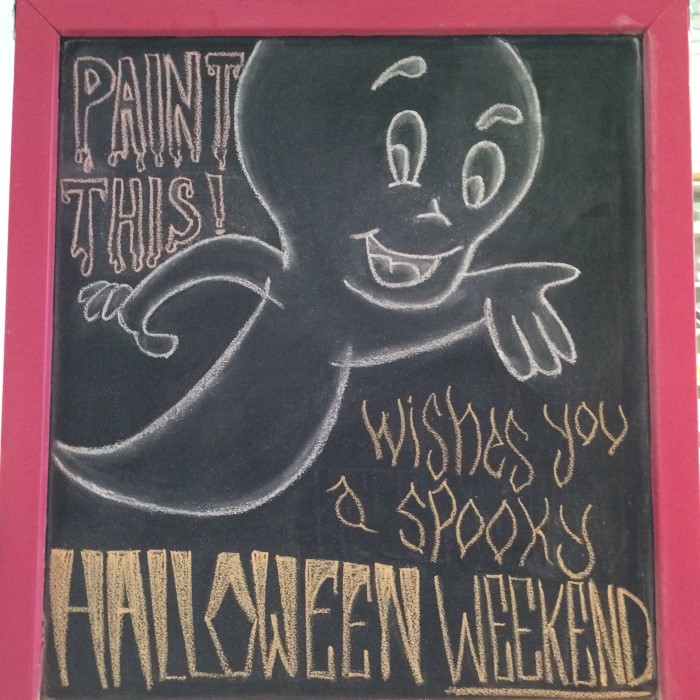 PAINT
THIS!
wishes you
a spooky
HALLOWEEN WEEKEND